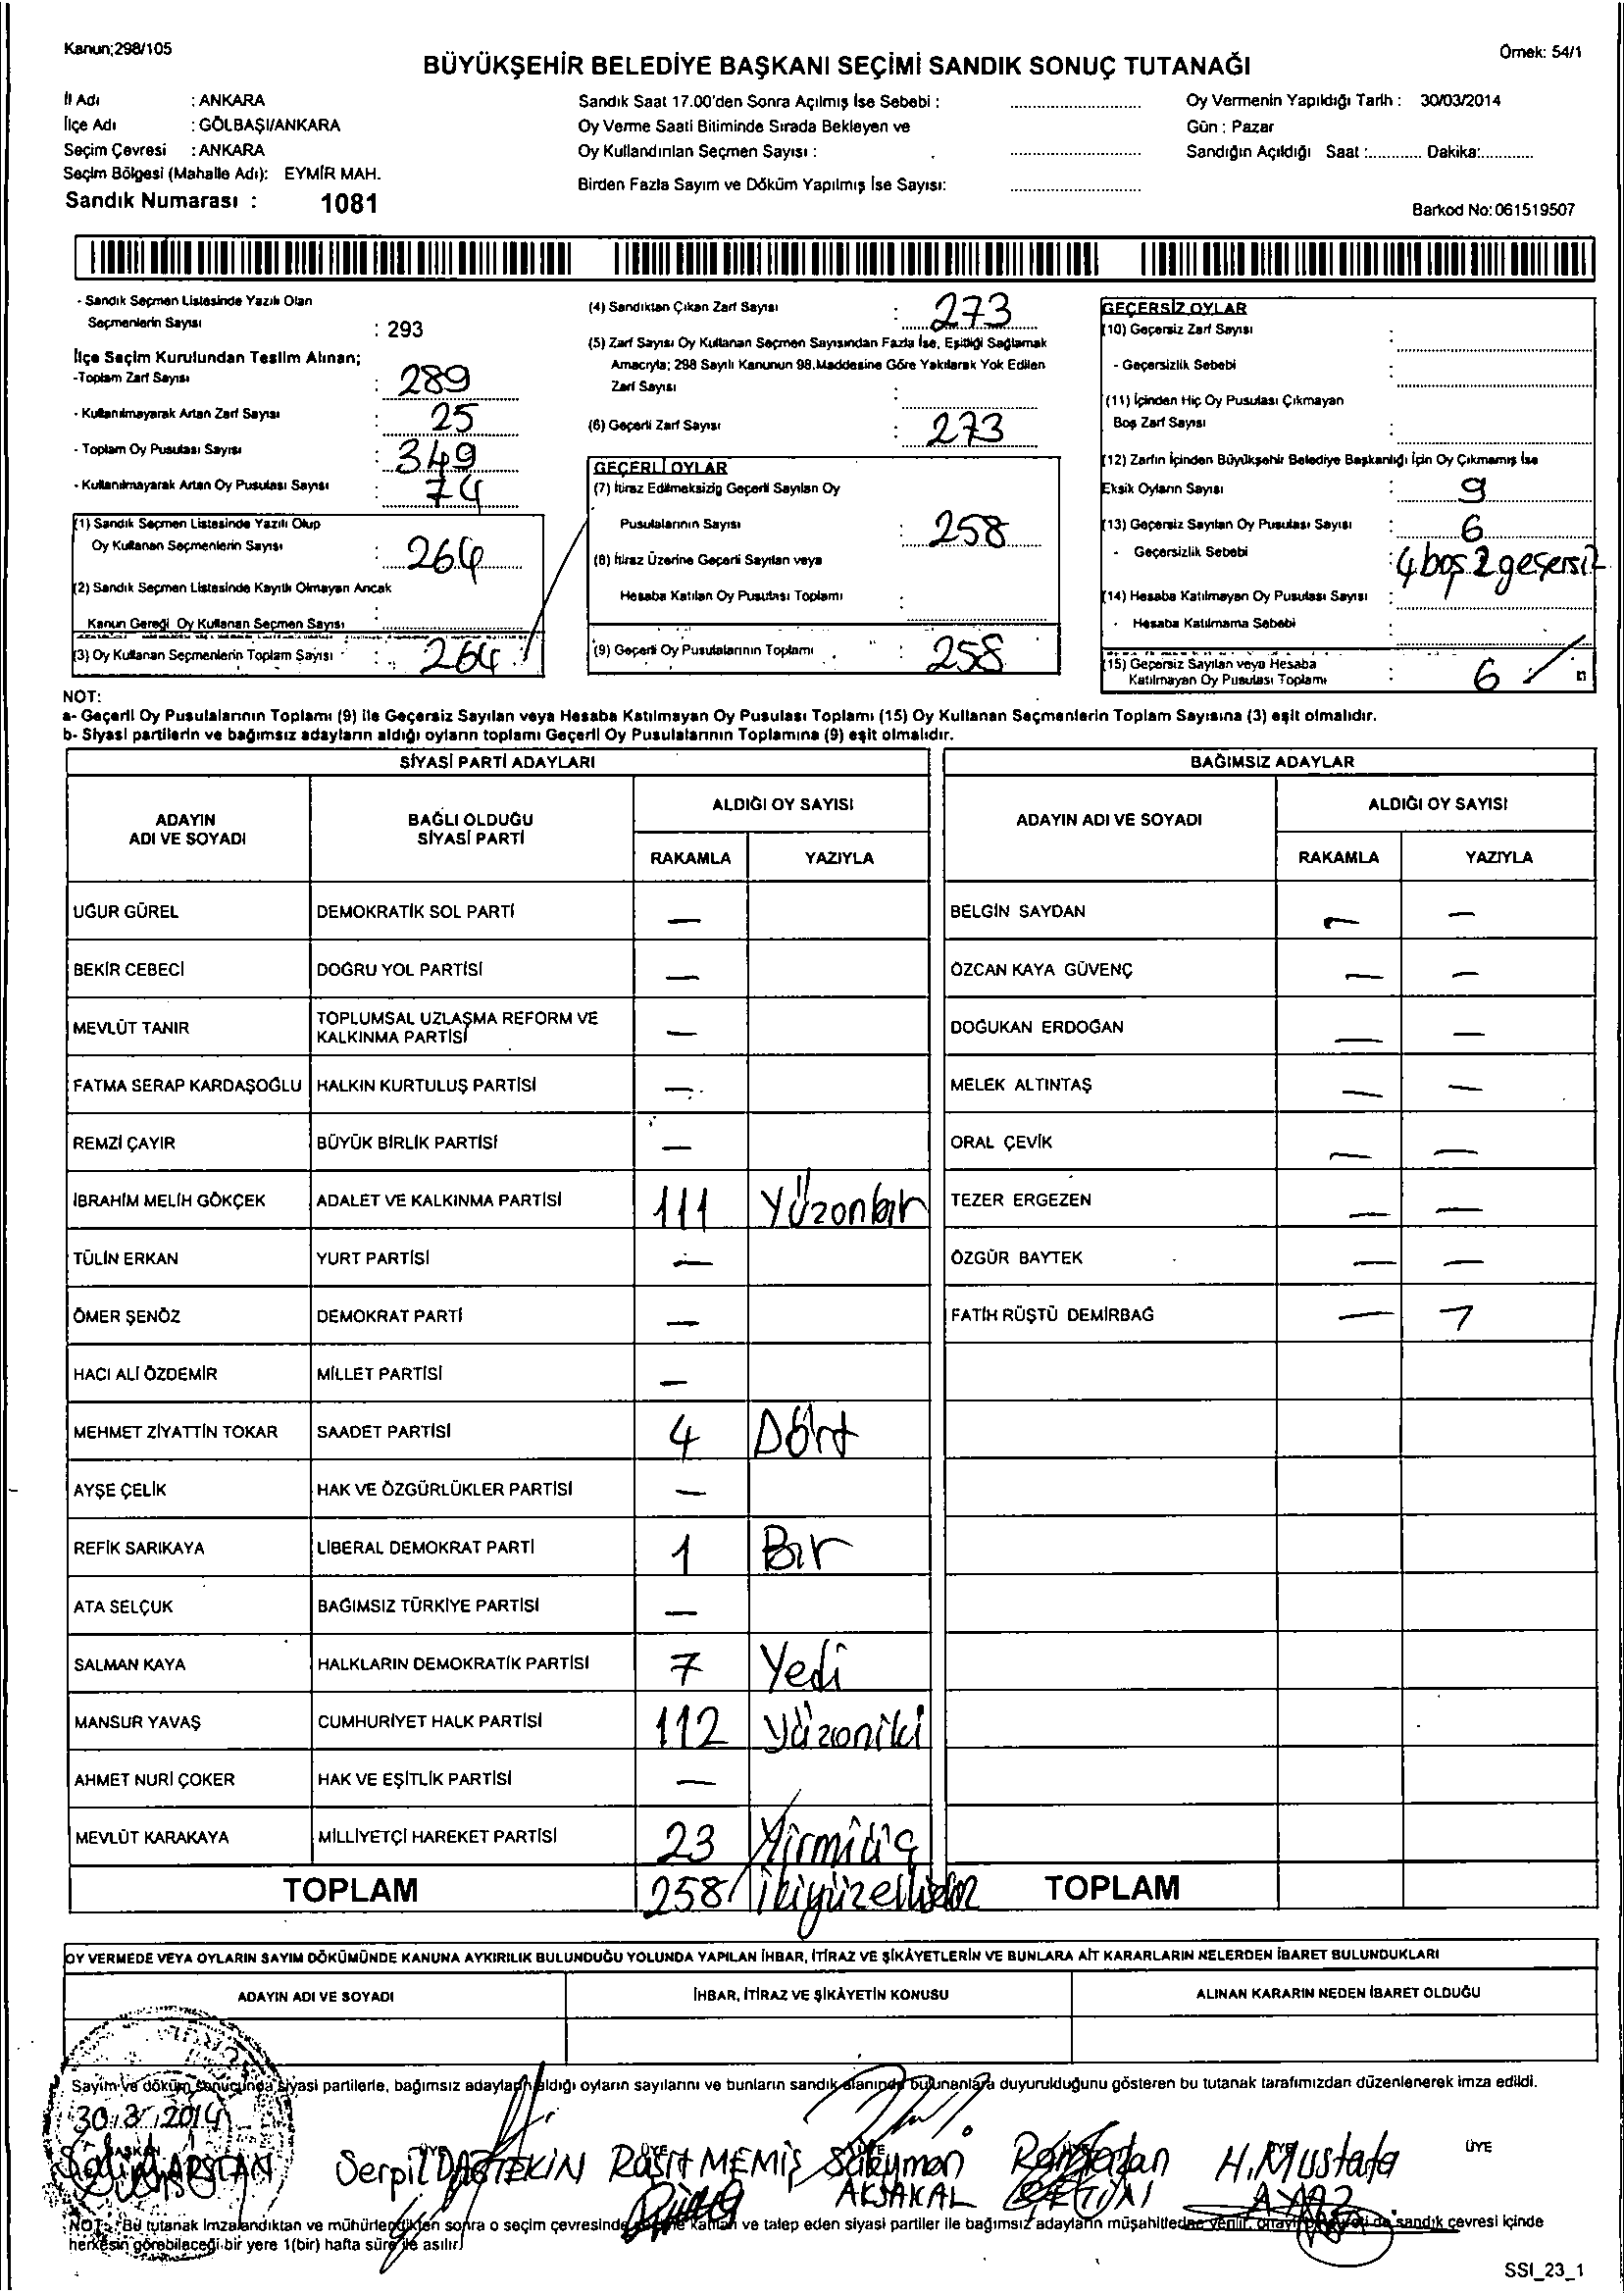 Kanun;298/105
Örnek: 54/1
BÜYÜKŞEHİR BELEDİYE BAŞKANI SEÇİMİ SANDIK SONUÇ TUTANAĞI
İl Adı : ANKARA
İlçe Adı : GÖLBAŞI/ANKARA
Seçim Çevresi : ANKARA
Seçim Bölgesi (Mahalle Adı): EYMİR MAH.
Sandık Numarası : 1081
Sandık Saat 17.00'den Sonra Açılmış İse Sebebi :
Oy Verme Saati Bitiminde Sırada Bekleyen ve
Oy Kullandırılan Seçmen Sayısı :
Birden Fazla Sayım ve Döküm Yapılmış İse Sayısı:
Oy Vermenin Yapıldığı Tarih : 30/03/2014
Gün : Pazar
Sandığın Açıldığı Saat :............ Dakika:............
Barkod No:061519507
- Sandık Seçmen Listesinde Yazılı Olan
Seçmenlerin Sayısı : 293
İlçe Seçim Kurulundan Teslim Alınan;
-Toplam Zarf Sayısı : 289
- Kullanılmayarak Artan Zarf Sayısı : 25
- Toplam Oy Pusulası Sayısı : 349
- Kullanılmayarak Artan Oy Pusulası Sayısı : 74
(1) Sandık Seçmen Listesinde Yazılı Olup
Oy Kullanan Seçmenlerin Sayısı : 264
(2) Sandık Seçmen Listesinde Kayıtlı Olmayan Ancak
Kanun Gereği Oy Kullanan Seçmen Sayısı :
(3) Oy Kullanan Seçmenlerin Toplam Sayısı : 264
(4) Sandıktan Çıkan Zarf Sayısı : 273
(5) Zarf Sayısı Oy Kullanan Seçmen Sayısından Fazla İse, Eşitliği Sağlamak
Amacıyla; 298 Sayılı Kanunun 98.Maddesine Göre Yakılarak Yok Edilen
Zarf Sayısı :
(6) Geçerli Zarf Sayısı : 273
GEÇERLİ OYLAR
(7) İtiraz Edilmeksizig Geçerli Sayılan Oy
Pusulalarının Sayısı : 258
(8) İtiraz Üzerine Geçerli Sayılan veya
Hesaba Katılan Oy Pusulası Toplamı :
(9) Geçerli Oy Pusulalarının Toplamı : 258
GEÇERSİZ OYLAR
(10) Geçersiz Zarf Sayısı :
- Geçersizlik Sebebi :
(11) İçinden Hiç Oy Pusulası Çıkmayan
Boş Zarf Sayısı :
(12) Zarfın İçinden Büyükşehir Belediye Başkanlığı İçin Oy Çıkmamış İse
Eksik Oyların Sayısı : 9
(13) Geçersiz Sayılan Oy Pusulası Sayısı : 6
- Geçersizlik Sebebi : 4 boş 2 geçersiz
(14) Hesaba Katılmayan Oy Pusulası Sayısı :
- Hesaba Katılmama Sebebi :
(15) Geçersiz Sayılan veya Hesaba
Katılmayan Oy Pusulası Toplamı : 6
NOT:
a- Geçerli Oy Pusulalarının Toplamı (9) ile Geçersiz Sayılan veya Hesaba Katılmayan Oy Pusulası Toplamı (15) Oy Kullanan Seçmenlerin Toplam Sayısına (3) eşit olmalıdır.
b- Siyasi partilerin ve bağımsız adayların aldığı oyların toplamı Geçerli Oy Pusulalarının Toplamına (9) eşit olmalıdır.
SİYASİ PARTİ ADAYLARI
ADAYIN ADI VE SOYADI
BAĞLI OLDUĞU SİYASİ PARTİ
ALDIĞI OY SAYISI
RAKAMLA YAZIYLA
UĞUR GÜREL DEMOKRATİK SOL PARTİ —
BEKİR CEBECİ DOĞRU YOL PARTİSİ —
MEVLÜT TANIR TOPLUMSAL UZLAŞMA REFORM VE KALKINMA PARTİSİ —
FATMA SERAP KARDAŞOĞLU HALKIN KURTULUŞ PARTİSİ —
REMZİ ÇAYIR BÜYÜK BİRLİK PARTİSİ —
İBRAHİM MELİH GÖKÇEK ADALET VE KALKINMA PARTİSİ 111 Yüzonbir
TÜLİN ERKAN YURT PARTİSİ —
ÖMER ŞENÖZ DEMOKRAT PARTİ —
HACI ALİ ÖZDEMİR MİLLET PARTİSİ —
MEHMET ZİYATTİN TOKAR SAADET PARTİSİ 4 Dört
AYŞE ÇELİK HAK VE ÖZGÜRLÜKLER PARTİSİ —
REFİK SARIKAYA LİBERAL DEMOKRAT PARTİ 1 Bir
ATA SELÇUK BAĞIMSIZ TÜRKİYE PARTİSİ —
SALMAN KAYA HALKLARIN DEMOKRATİK PARTİSİ 7 Yedi
MANSUR YAVAŞ CUMHURİYET HALK PARTİSİ 112 Yüzoniki
AHMET NURİ ÇOKER HAK VE EŞİTLİK PARTİSİ —
MEVLÜT KARAKAYA MİLLİYETÇİ HAREKET PARTİSİ 23 Yirmiüç
TOPLAM 258 İkiyüzellisekiz
BAĞIMSIZ ADAYLAR
ADAYIN ADI VE SOYADI
ALDIĞI OY SAYISI
RAKAMLA YAZIYLA
BELGİN SAYDAN — —
ÖZCAN KAYA GÜVENÇ — —
DOĞUKAN ERDOĞAN — —
MELEK ALTINTAŞ — —
ORAL ÇEVİK — —
TEZER ERGEZEN — —
ÖZGÜR BAYTEK — —
FATİH RÜŞTÜ DEMİRBAĞ — —
TOPLAM
OY VERMEDE VEYA OYLARIN SAYIM DÖKÜMÜNDE KANUNA AYKIRILIK BULUNDUĞU YOLUNDA YAPILAN İHBAR, İTİRAZ VE ŞİKÂYETLERİN VE BUNLARA AİT KARARLARIN NELERDEN İBARET BULUNDUKLARI
ADAYIN ADI VE SOYADI
İHBAR, İTİRAZ VE ŞİKÂYETİN KONUSU
ALINAN KARARIN NEDEN İBARET OLDUĞU
Sayım ve döküm sonucunda siyasi partilerle, bağımsız adayların aldığı oyların sayılarını ve bunların sandık alanında bulunanlara duyurulduğunu gösteren bu tutanak tarafımızdan düzenlenerek imza edildi.
30.3.2014
BAŞKAN ÜYE ÜYE ÜYE ÜYE ÜYE ÜYE
Serpil Raşit MEMİŞ Süleyman AKSAKAL Ramazan H.Mustafa
NOT: Bu tutanak imzalandıktan ve mühürlendikten sonra o seçim çevresinde seçime katılan ve talep eden siyasi partiler ile bağımsız adayların müşahitlerine verilir, sandık çevresi içinde
herkesin görebileceği bir yere 1(bir) hafta süre ile asılır.
SSI_23_1